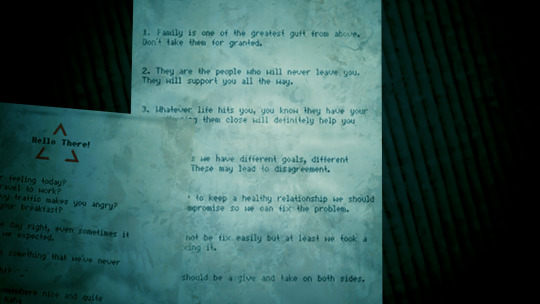 1. Family is one of the greatest gift from above.
Don't take them for granted.
2. They are the people who will never leave you.
They will support you all the way.
3. Whatever life hits you, you know they have your
them close will definitely help you
we have different goals, different
These may lead to disagreement.
to keep a healthy relationship we should
so we can fix the problem.
not be fix easily but at least we took a
it.
should be a give and take on both sides.
Hello There!
feeling today?
to work?
traffic makes you angry?
your breakfast?
day right, even sometimes it
we expected.
something that we've never
nice and quite